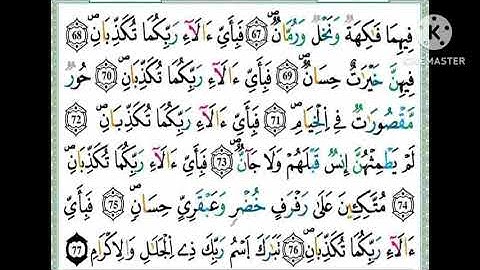 فِيهِمَا فَاكِهَةٌ وَنَخْلٌ وَرُمَّانٌ ۝67 فَبِأَيِّ ءَالَآءِ رَبِّكُمَا تُكَذِّبَانِ ۝68
فِيهِنَّ خَيْرَاتٌ حِسَانٌ ۝69 فَبِأَيِّ ءَالَآءِ رَبِّكُمَا تُكَذِّبَانِ ۝70 حُورٌ
مَّقْصُورَاتٌ فِي الْخِيَامِ ۝71 فَبِأَيِّ ءَالَآءِ رَبِّكُمَا تُكَذِّبَانِ ۝72
لَمْ يَطْمِثْهُنَّ إِنسٌ قَبْلَهُمْ وَلَا جَانٌّ ۝73 فَبِأَيِّ ءَالَآءِ رَبِّكُمَا تُكَذِّبَانِ
۝74 مُتَّكِئِينَ عَلَىٰ رَفْرَفٍ خُضْرٍ وَعَبْقَرِيٍّ حِسَانٍ ۝75 فَبِأَيِّ
ءَالَآءِ رَبِّكُمَا تُكَذِّبَانِ ۝76 تَبَارَكَ اسْمُ رَبِّكَ ذِي الْجَلَالِ وَالْإِكْرَامِ ۝77
KINEMASTER